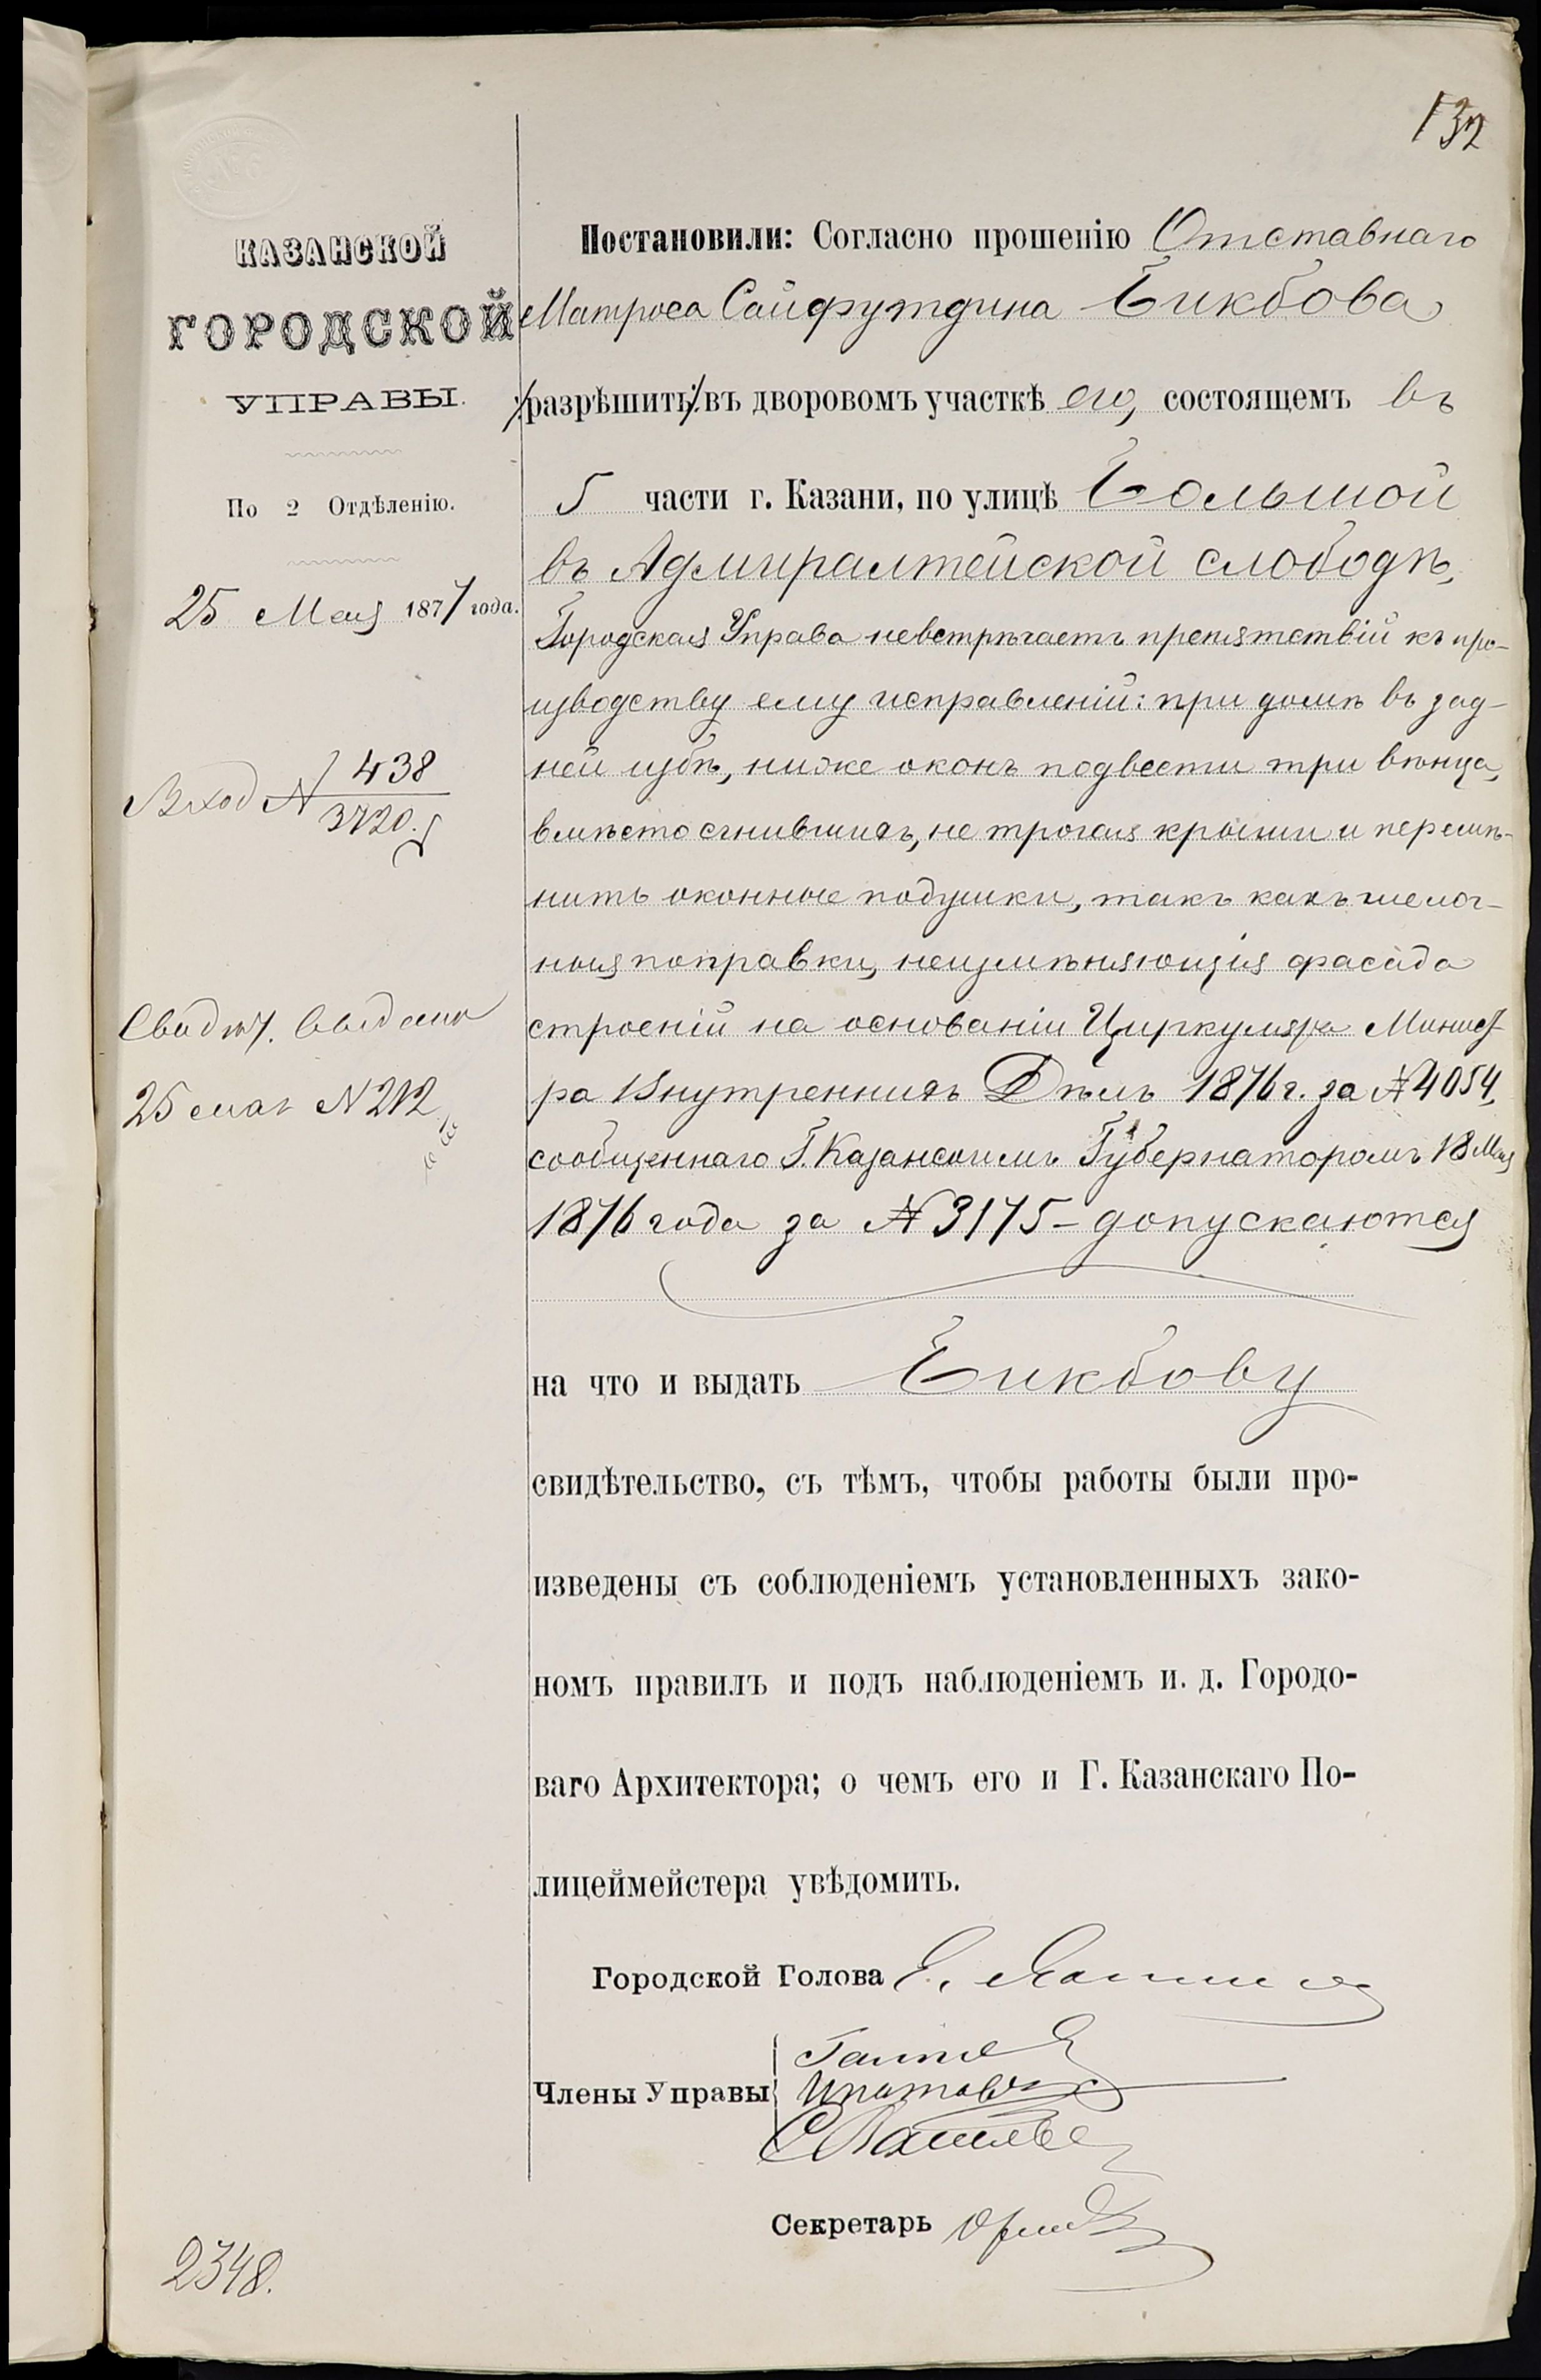 132
КАЗАНСКОЙ
ГОРОДСКОЙ
УПРАВЫ.
По 2 Отдѣленію.
25 Мая 1877 года.
Вход № 438
3720.
Свидѣт. выдано
25 мая № 212
2348.
Постановили: Согласно прошенію Отставнаго
Матроса Сайфутдина Бикбова
/разрѣшить/: въ дворовомъ участкѣ его, состоящемъ въ
5 части г. Казани, по улицѣ Большой
въ Адмиралтейской слободѣ,
Городская Управа невстрѣчаетъ препятствій къ про-
изводству ему исправленій: при домѣ въ зад-
ней избѣ, ниже оконъ подвести три вѣнца,
вмѣсто сгнившихъ, не трогая крыши и перемѣ-
нить оконные подушки, такъ какъ мелоч-
ныя поправки, неизмѣняющія фасада
строеній на основаніи Циркуляра Минист-
ра Внутреннихъ Дѣлъ 1876 г. за № 4054,
сообщеннаго Г. Казанскимъ Губернаторомъ 18 Мая
1876 года за № 3175 – допускаются
на что и выдать Бикбову
свидѣтельство, съ тѣмъ, чтобы работы были про-
изведены съ соблюденіемъ установленныхъ зако-
номъ правилъ и подъ наблюденіемъ и. д. Городо-
ваго Архитектора; о чемъ его и Г. Казанскаго По-
лицеймейстера увѣдомить.
Городской Голова
Члены Управы
Ипатовъ
С Васильев
Секретарь